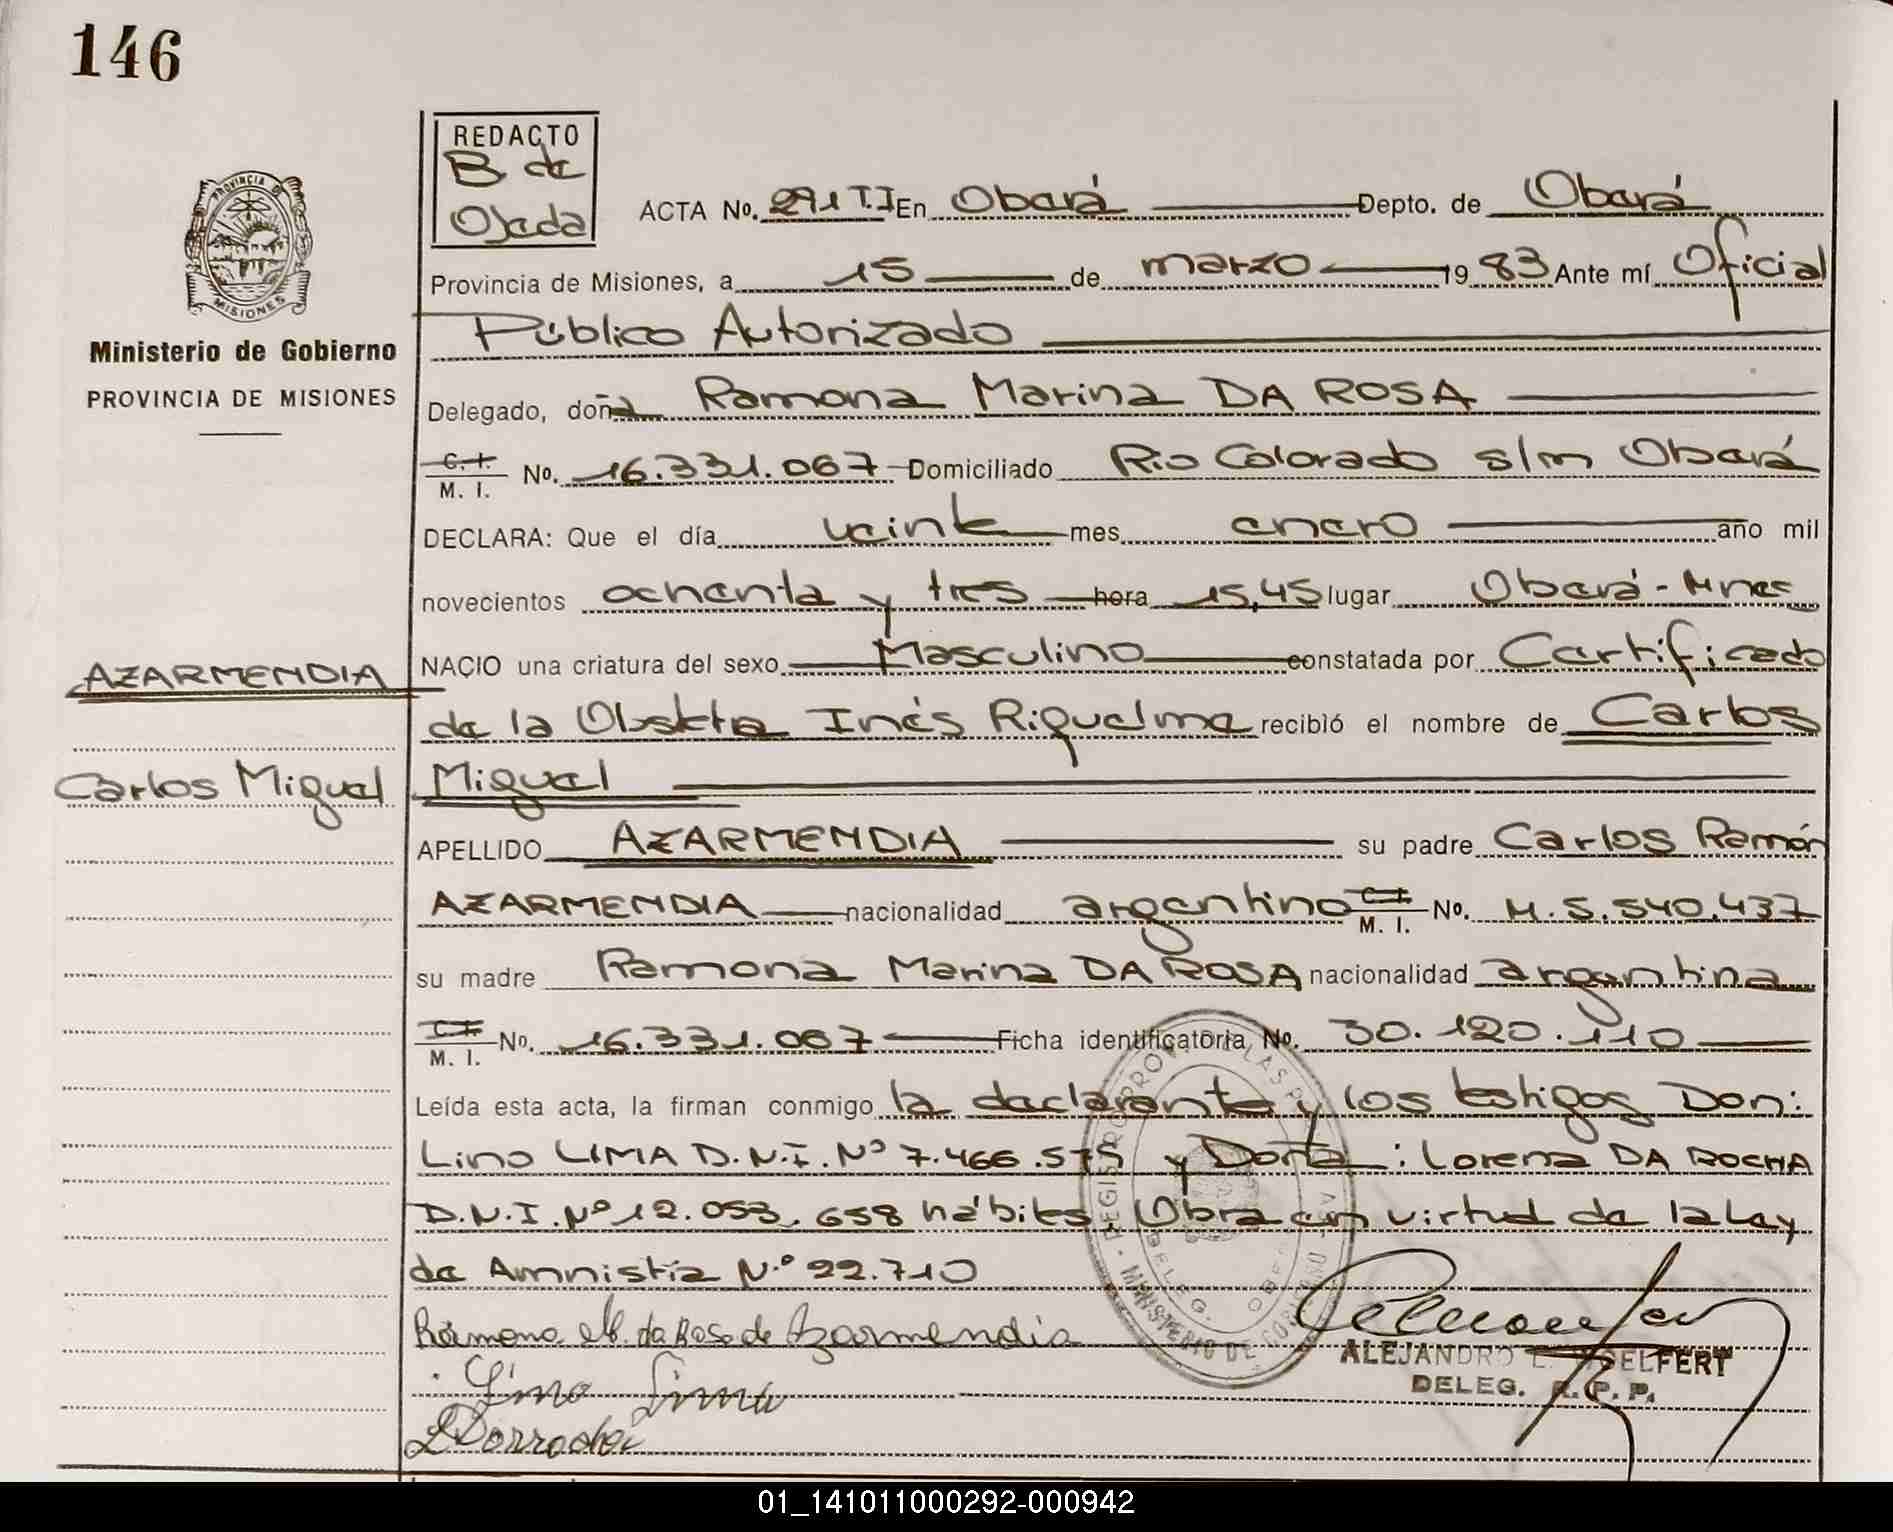 146
REDACTO
B de
Ojeda
PROVINCIA DE
MISIONES
Ministerio de Gobierno
PROVINCIA DE MISIONES
ACTA No. 291 T.I En Oberá Depto. de Oberá
Provincia de Misiones, a 15 de marzo 1983 Ante mí Oficial
Público Autorizado
Delegado, doña Ramona Marina DA ROSA
C. I. M. I. No. 16.331.067 Domiciliado Rio Colorado s/m Oberá
DECLARA: Que el día veinte mes enero año mil
novecientos ochenta y tres hora 15,45 lugar Oberá-Mnes
AZARMENDIA
NACIO una criatura del sexo Masculino constatada por Certificado
de la Obstetra Inés Riquelme recibió el nombre de Carlos
Carlos Miguel
Miguel
APELLIDO AZARMENDIA su padre Carlos Ramón
AZARMENDIA nacionalidad argentino C.I. M. I. No. M. 5.540.437
su madre Ramona Marina DA ROSA nacionalidad argentina
C.I. M. I. No. 16.331.067 Ficha identificatoria No. 30.120.110
Leída esta acta, la firman conmigo la declarante y los testigos Don:
Lino LIMA D.N.I. Nº 7.466.575 y Doña: Lorena DA ROCHA
D.N.I. Nº 12.053.658 hábiles. Obra en virtud de la Ley
de Amnistía N.º 22.710
Ramona M. da Rosa de Azarmendia
Lino Lima
ALEJANDRO
DELEG. R. P. P.
01_141011000292-000942